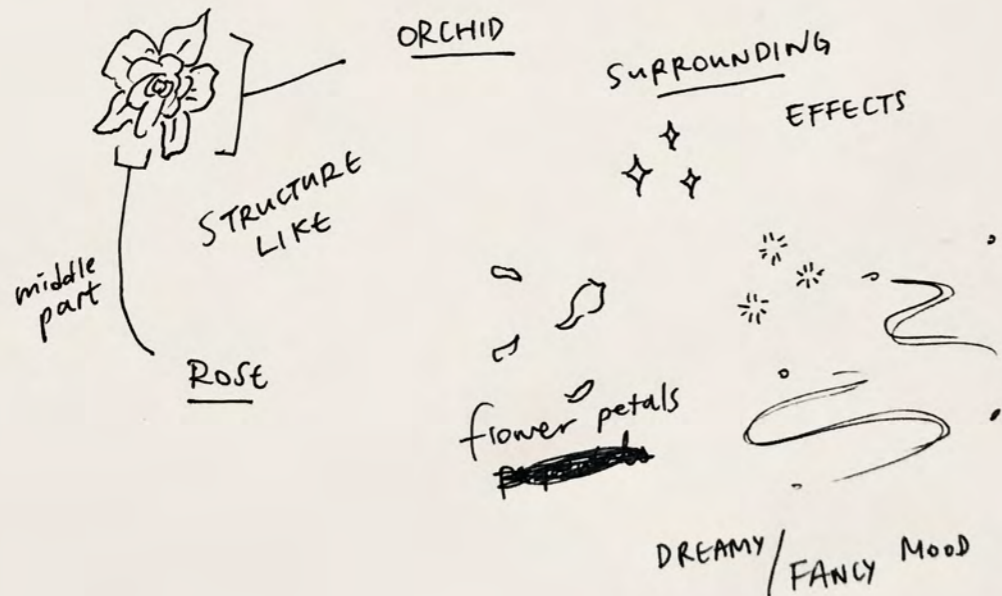 ORCHID
STRUCTURE
LIKE
middle
part
ROSE
SURROUNDING
EFFECTS
flower petals
DREAMY / FANCY MOOD